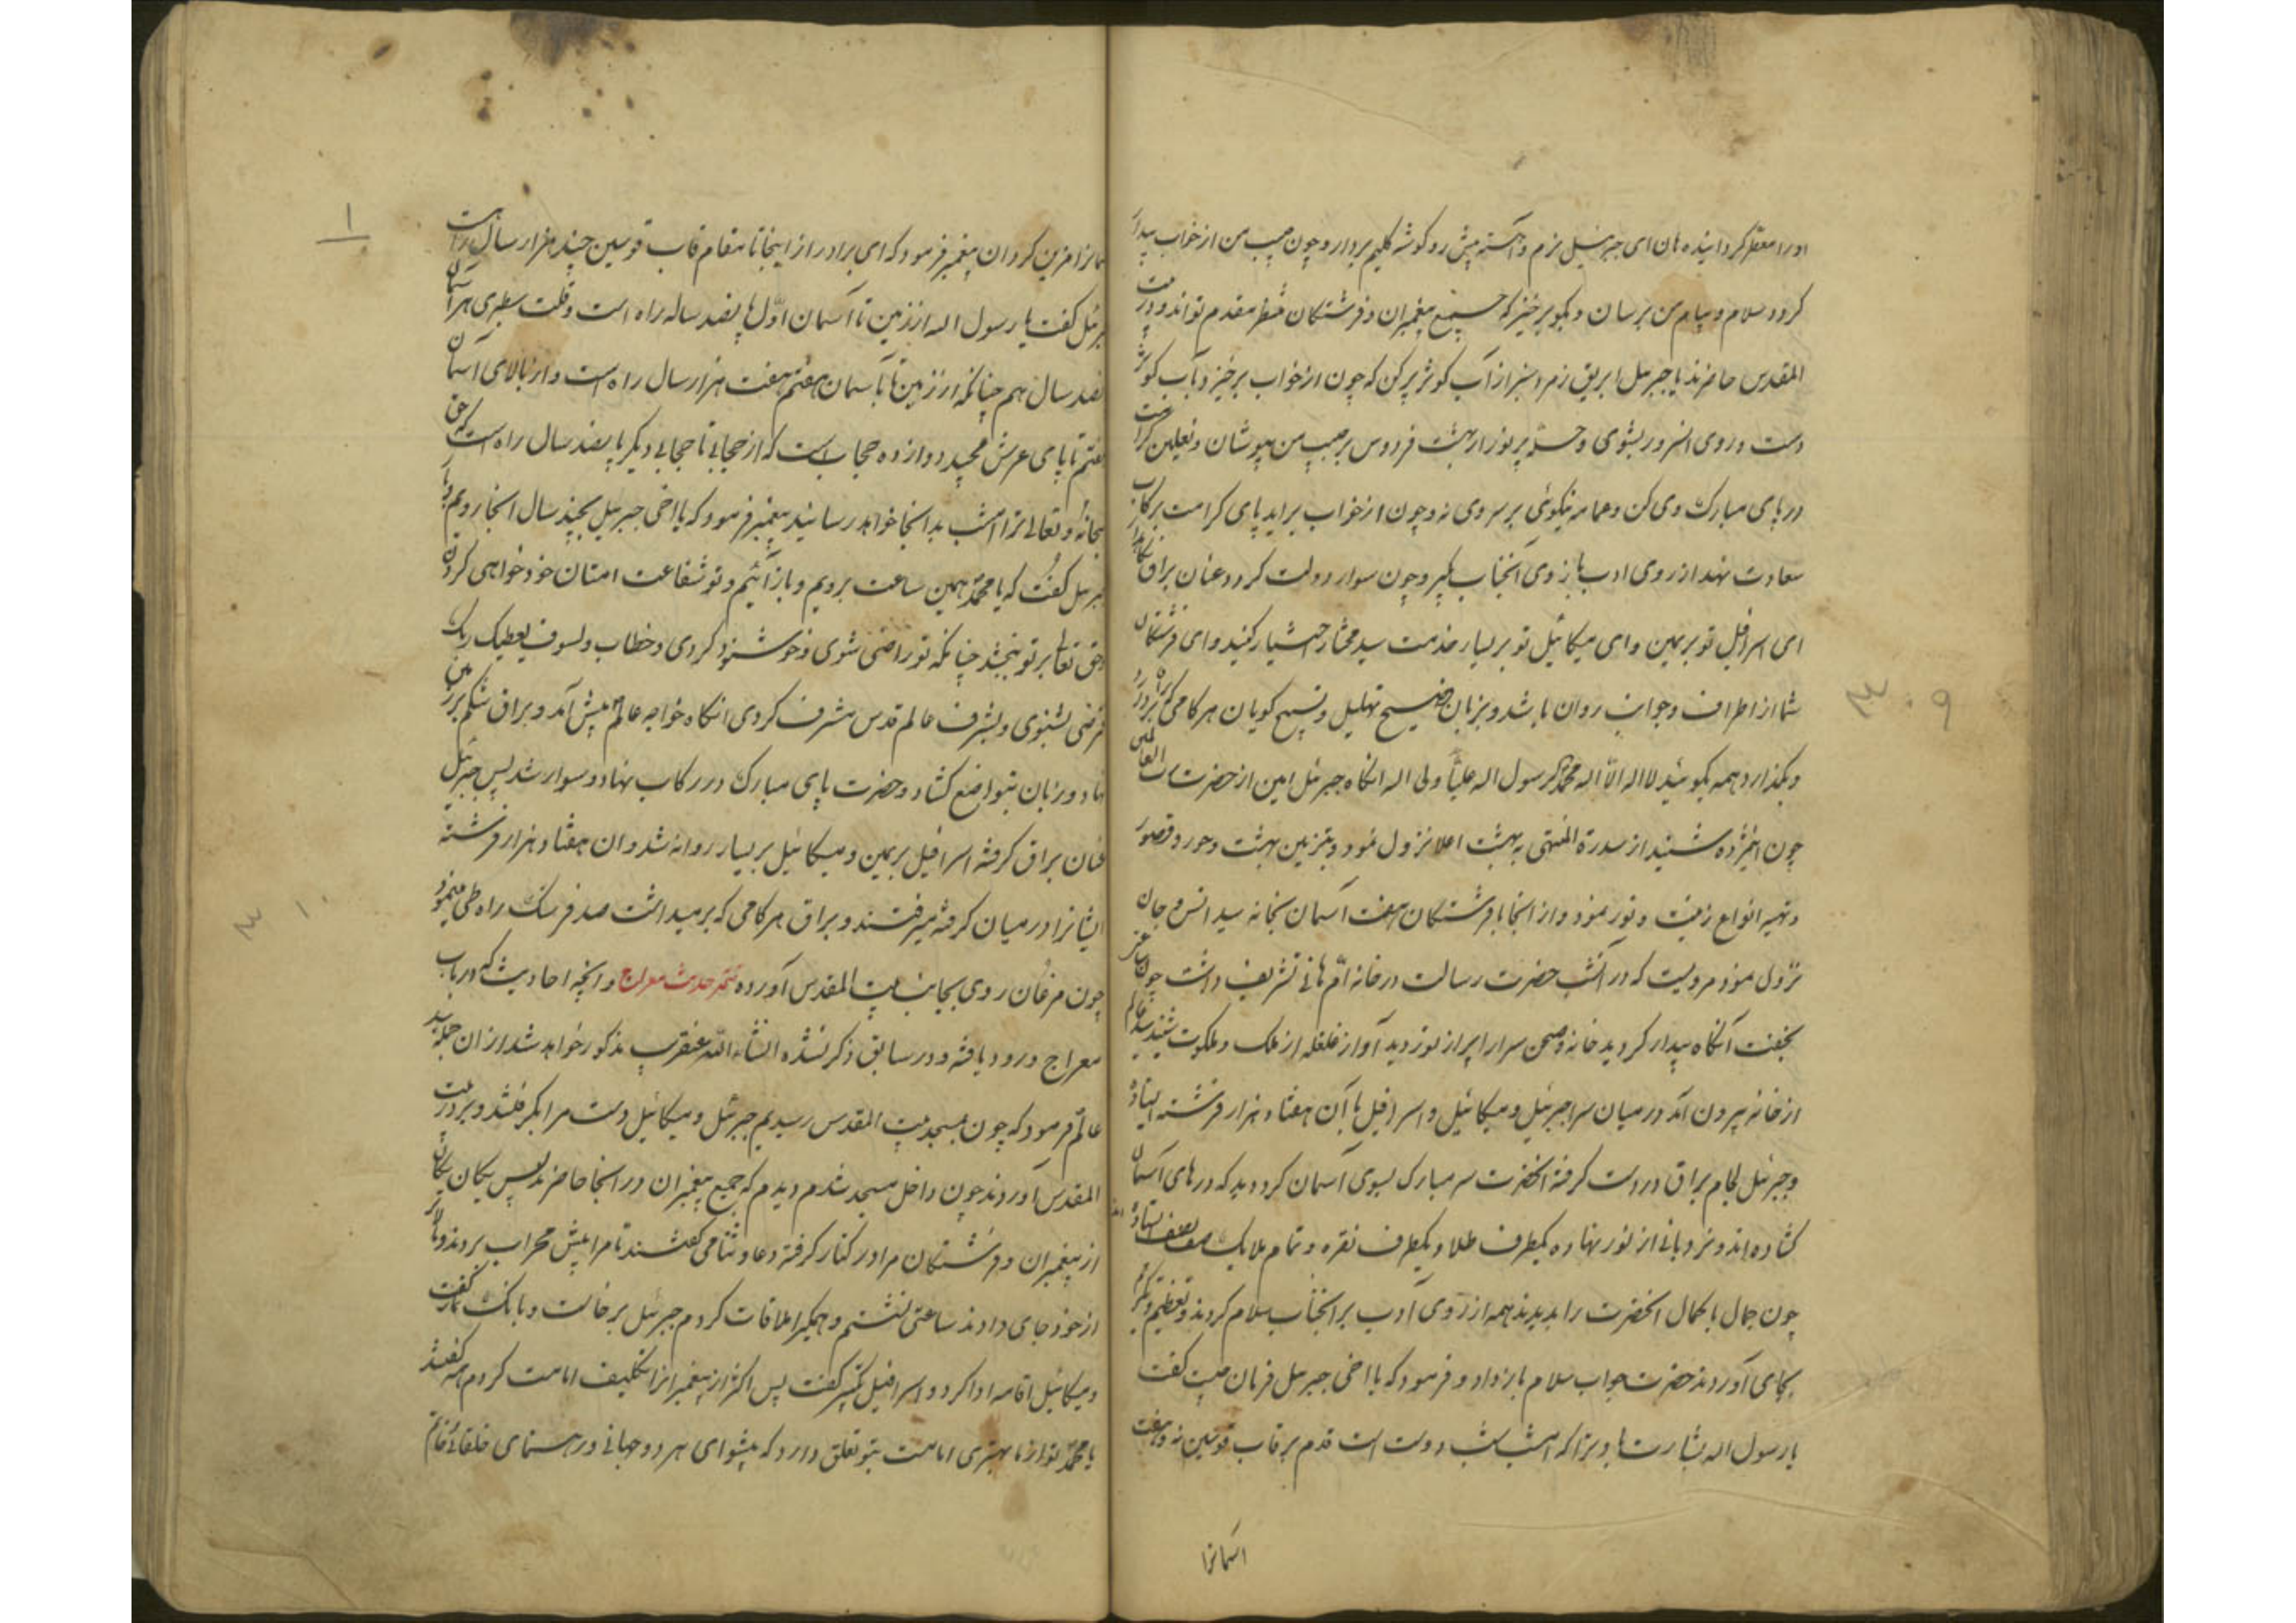 او را معطر گردانیده هان ای جبرئیل نرم و آهسته پیش رو گوشه گلیم بردار و چون حبیب من از خواب بیدار
گردد سلام و پیام من برسان و بگو برخیز که جمیع پیغمبران و فرشتگان منتظر مقدم تواند و در بیت
المقدس حاضرند یا جبرئیل ابریق زمرد سبز از آب کوثر پر کن که چون از خواب برخیزد بآب کوثر
دست و روی انور بشوی و حله پر نور از بهشت فردوس بر حبیب من بپوشان و نعلین کرامت
در پای مبارک وی کن و عمامه نیکوئی بر سر وی نه و چون از خواب براید پای کرامت بر رکاب
سعادت نهد از روی ادب بازوی آنجناب بگیر و چون سوار دولت گردد عنان براق نگاهدار
ای اسرافیل تو بر یمین و ای میکائیل تو بر یسار خدمت سید مختار اختیار کنید و ای فرشتگان
شما از اطراف و جوانب روان باشید و بزبان فصیح تهلیل و تسبیح گویان هر گامی که براق بردارد
و بگذارد همه بگوئید لا اله الا اله محمد رسول اله علیا ولی اله انگاه جبرئیل امین از حضرت رب العالمین
چون این مژده شنید از سدرة المنتهی به بهشت اعلا نزول نمود و بتزیین بهشت و حور و قصور
و تهیه انواع زینت و نور نمود و از انجا با فرشتگان هفت آسمان بخانه سید انس و جان
نزول نمود مرویست که در انشب حضرت رسالت در خانه ام هانی تشریف داشت چون نماز
بخفت آنگاه بیدار گردید خانه و صحن سرا را پر از نور دید آواز غلغله از ملک و ملکوت شنید سید عالم
از خانه بیرون آمد در میان سرا جبرئیل و میکائیل و اسرافیل با آن هفتاد هزار فرشته ایستاده
و جبرئیل لجام براق در دست گرفته انحضرت سر مبارک بسوی آسمان کرد دید که درهای آسمان
گشاده اند و نردبانی از نور نهاده یکطرف طلا و یکطرف نقره و تمام ملایک صف بصف ایستاده
چون جمال با کمال انحضرت را بدیدند همه از روی ادب بر انجناب سلام کردند و تعظیم و تکریم
بجای آوردند حضرت جواب سلام باز داد و فرمود که یا اخی جبرئیل فرمان چیست گفت
یا رسول اله بشارت باد ترا که امشب شب دولت است قدم بر قاب قوسین نه و هفت
اسمانرا
۹
همانرا مزین گردان پیغمبر فرمود که ای برادر از اینجا تا مقام قاب قوسین چند هزار سال راهست
جبرئیل گفت یا رسول اله از زمین تا آسمان اول پانصد ساله راه است و غلت سطبری هر آسمان
پانصد سال هم چنانکه از زمین تا بآسمان هفتم هفت هزار سال راه است و از بالای آسمان
هفتم تا پای عرش مجید دوازده حجابست که از حجابی تا حجابی دیگر پانصد سال راه است که حق
سبحانه و تعالی ترا امشب بدانجا خواهد رسانید پیغمبر فرمود که یا اخی جبرئیل بچند سال انجا رویم و باز
جبرئیل گفت که یا محمد همین ساعت برویم و باز آئیم و تو شفاعت امتان خود خواهی کردن
و حق تعالی بر تو ببخشد چنانکه تو راضی شوی و خوشنود گردی و خطاب ولسوف یعطیک ربک
فترضی بشنوی و بشرف عالم قدس مشرف گردی انگاه خواجه عالم پیش آمد و براق شکم بر زمین
نهاد و زبان بتواضع گشاد و حضرت پای مبارک در رکاب نهاد و سوار شد پس جبرئیل
عنان براق گرفته اسرافیل بر یمین و میکائیل بر یسار روانه شد و ان هفتاد هزار فرشته
ایشانرا در میان گرفته میرفتند و براق هر گامی که بر میداشت صد فرسنگ راه طی مینمود
چون مرغان روی بجانب بیت المقدس آورده تتمه حدیث معراج و انچه احادیث که در باب
معراج ورود یافته و در سابق ذکر نشده انشاء الله عنقریب مذکور خواهد شد از ان جمله سید
عالم فرمود که چون بمسجد بیت المقدس رسیدیم جبرئیل و میکائیل دست مرا بگرفتند و بر در بیت
المقدس آوردند چون داخل مسجد شدم دیدم که جمیع پیغمبران در انجا حاضرند پس یکان یکان
از پیغمبران و فرشتگان مرا در کنار گرفته دعا و ثنا می گفتند تا مرا پیش محراب بردند و بالاتر
از خود جای دادند ساعتی نشستم و همگیرا ملاقات کردم جبرئیل برخاست و بانک نماز گفت
و میکائیل اقامه ادا کرد و اسرافیل تکبیر گفت پس اکثر از پیغمبرانرا تکلیف امامت کردم همه گفتند
یا محمد تو از ما بهتری امامت بتو تعلق دارد که پیشوای هر دو جهانی و رهنمای خلقانی خاتم
۱
۱۰